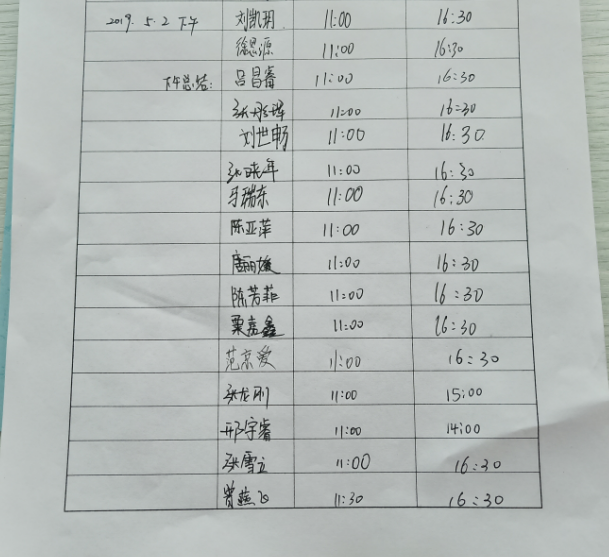 2019. 5. 2 下午 刘凯玥 11:00 16:30
徐思源 11:00 16:30
下午总结: 吕昌睿 11:00 16:30
11:00 16:30
刘世畅 11:00 16:30
11:00 16:30
马瑞东 11:00 16:30
陈亚萍 11:00 16:30
11:00 16:30
陈芳菲 11:00 16:30
栗嘉鑫 11:00 16:30
范京爱 11:00 16:30
张龙刚 11:00 15:00
邢宇睿 11:00 14:00
张雪立 11:00 16:30
曾燕飞 11:30 16:30